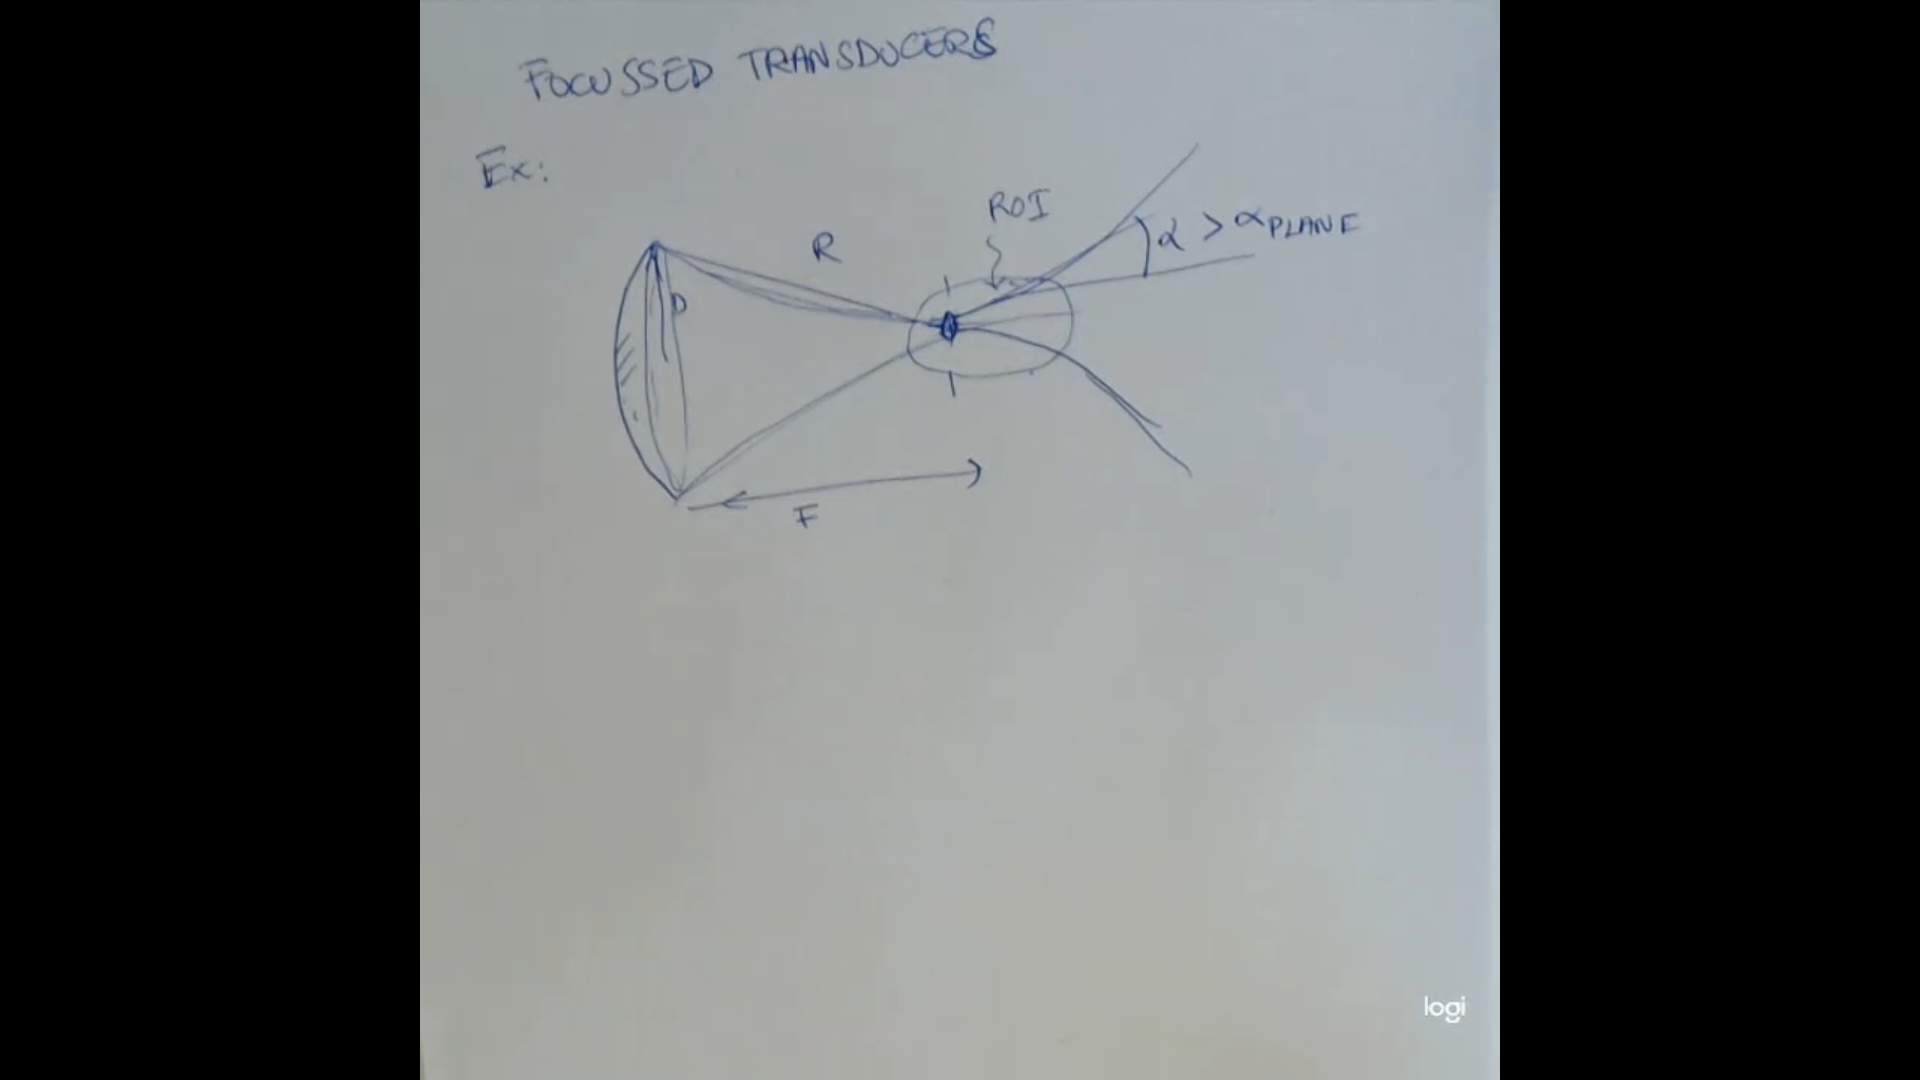 FOCUSSED TRANSDUCERS
Ex:
ROI
R
α > α PLANE
D
F
logi